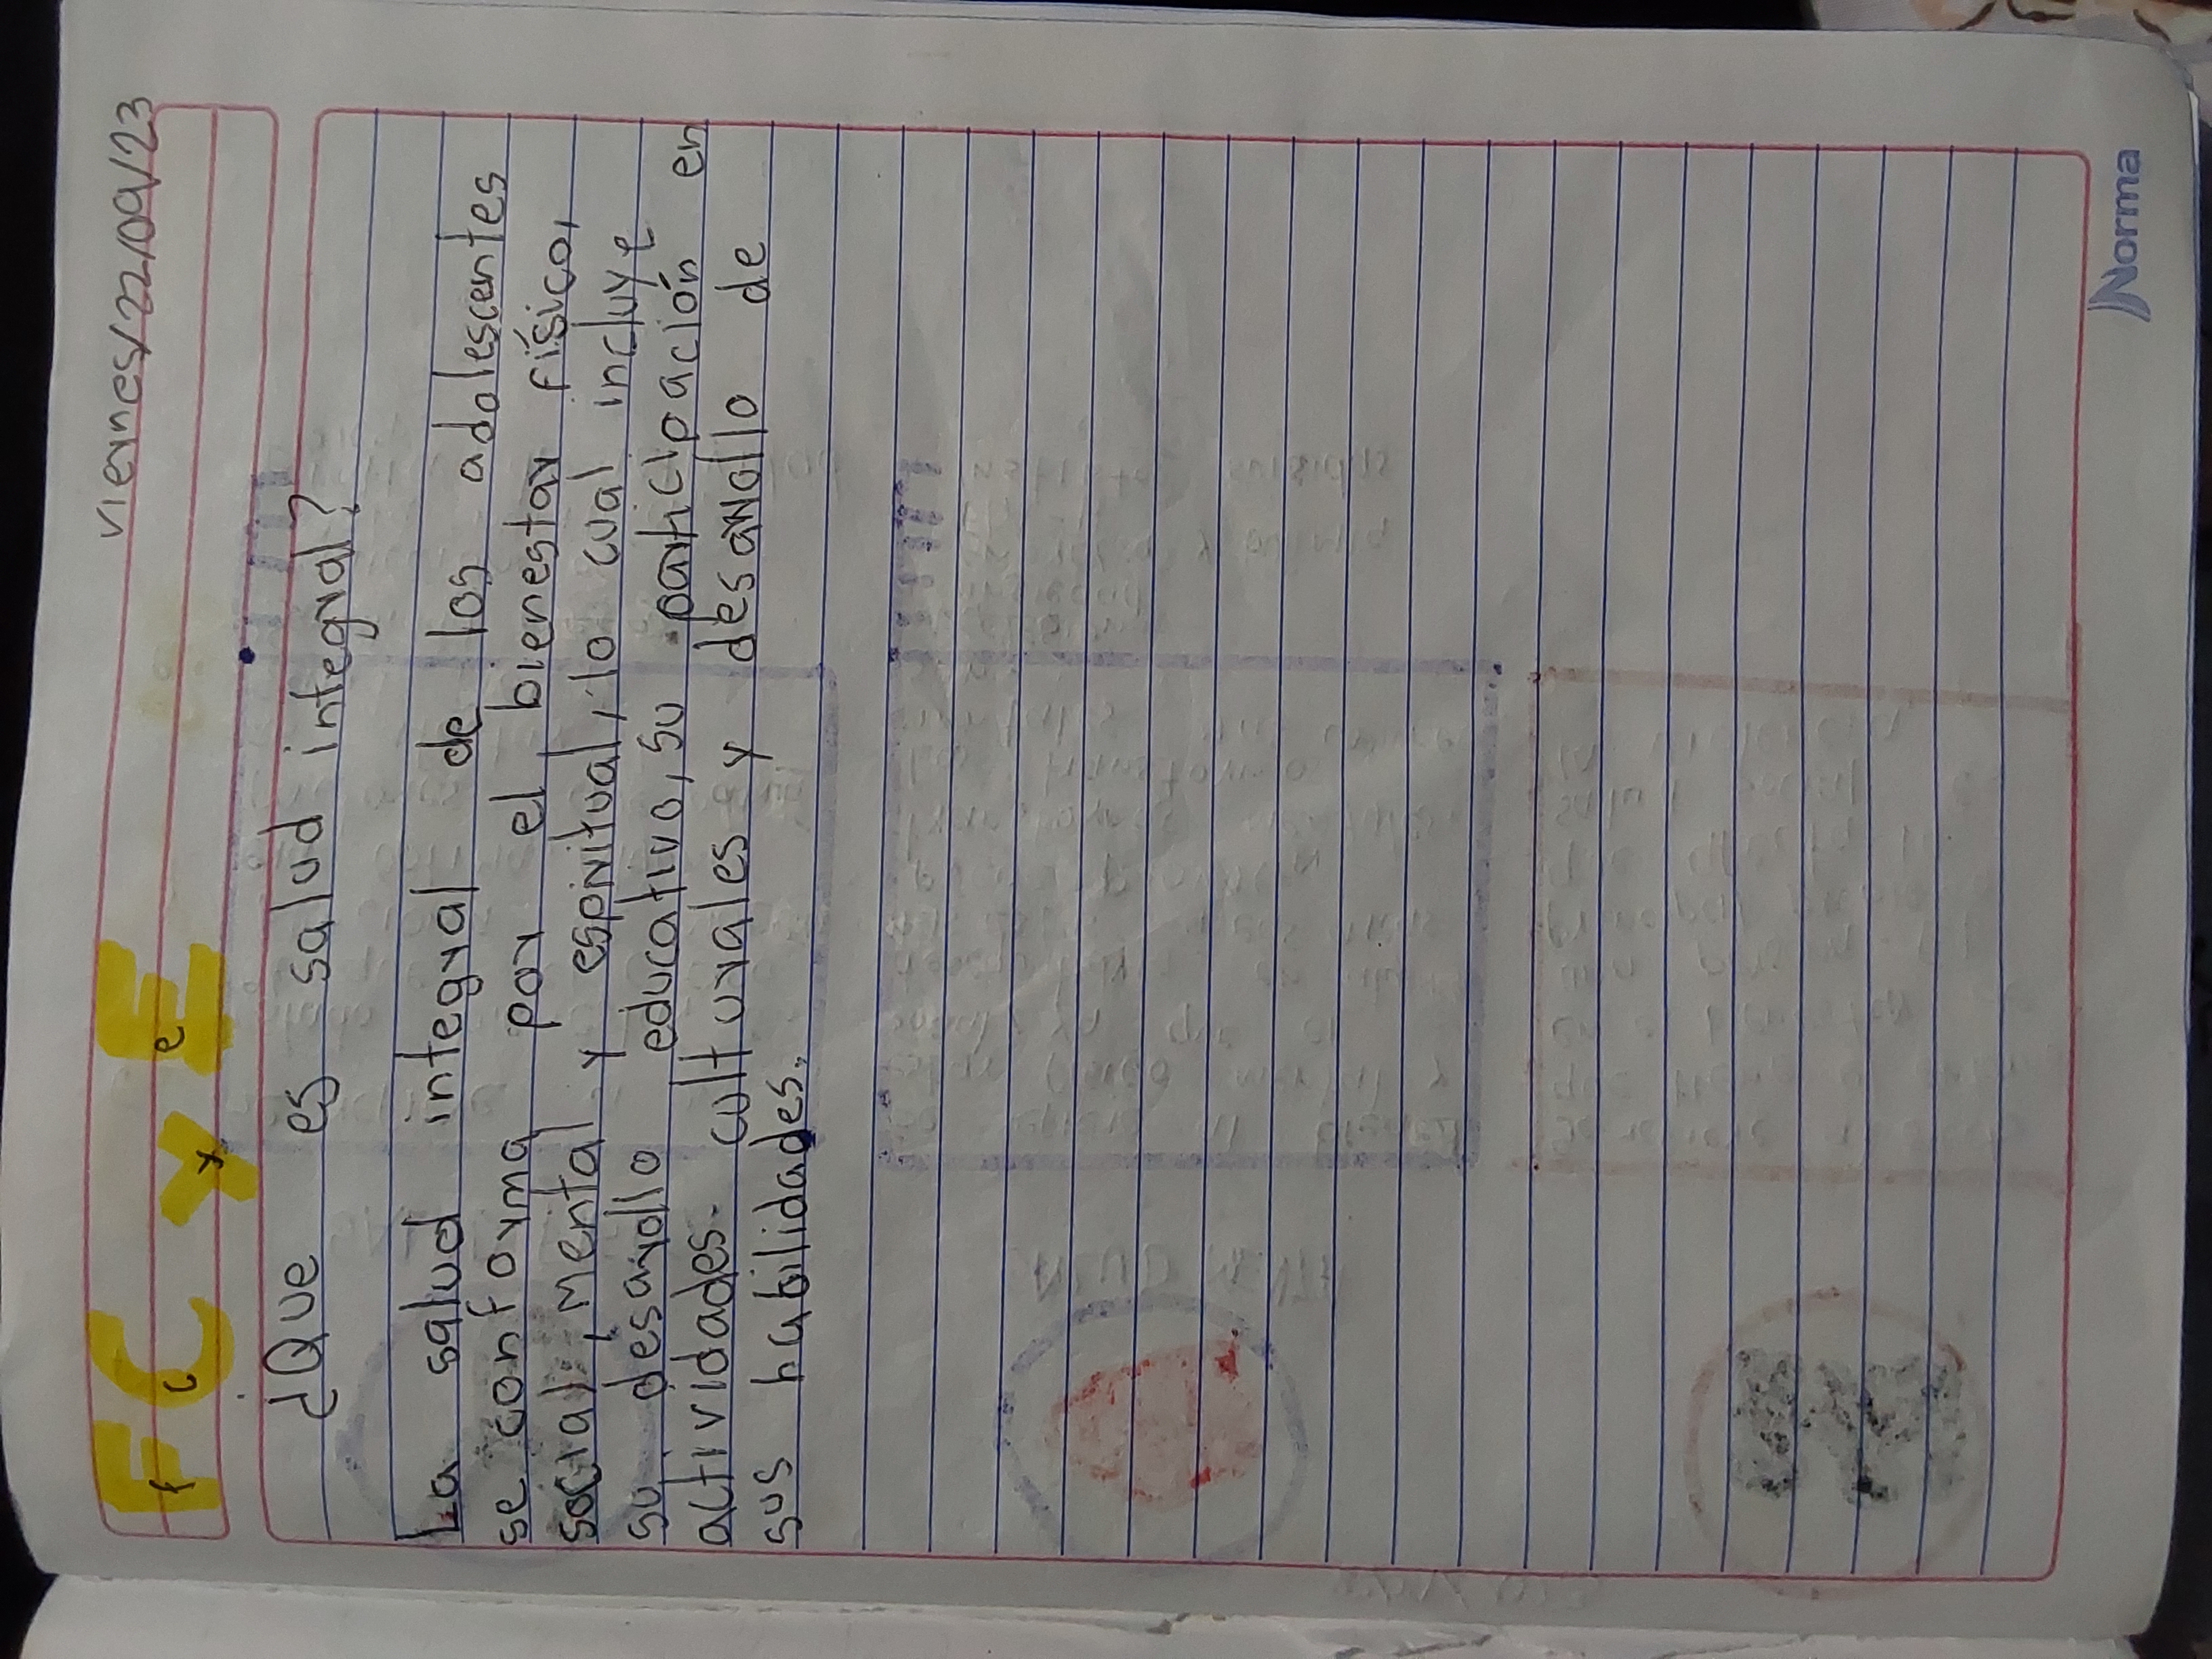 viernes/22/09/23
FC y E
f c y e
¿Que es salud integral?
La salud integral de los adolescentes
se conforma por el bienestar físico,
social, mental y espiritual, lo cual incluye
su desarrollo educativo, su participación en
actividades culturales y desarrollo de
sus habilidades.
Norma